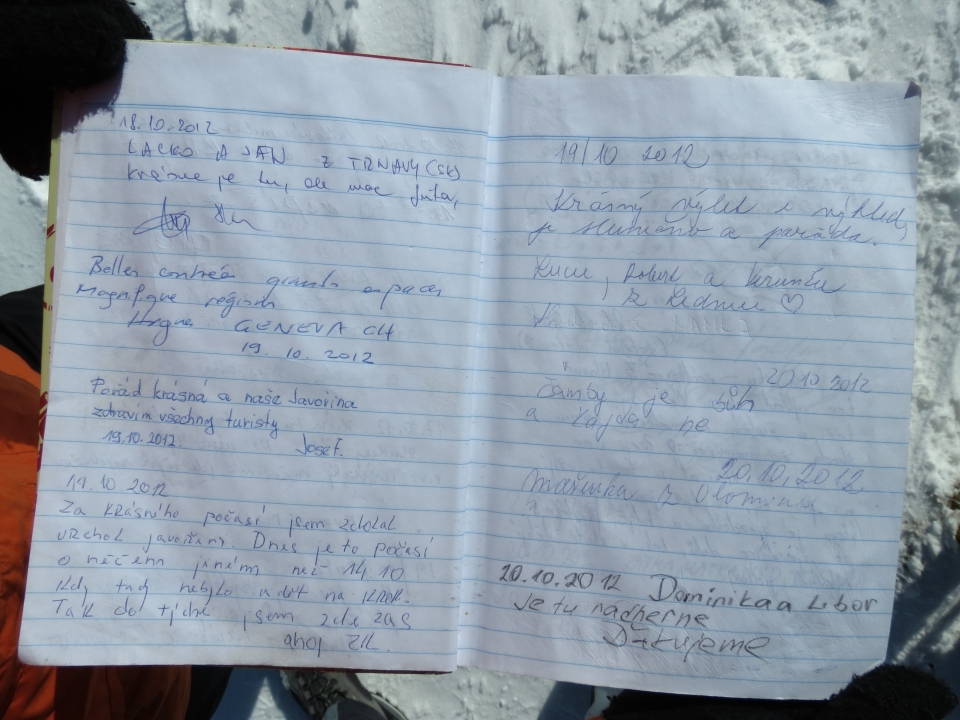 18.10.2012
LACKO A JÁN Z TRNAVY (SK)
krásne je tu, ale moc fúka,
Belles contrées grands espaces
Magnifique région
GENEVA CH
19.10.2012
Pořád krásná a naše Javořina
zdravím všechny turisty
19.10.2012. Josef.
19.10 2012
Za krásného počasí jsem zdolal
vrchol javořiny Dnes je to počasí
o něčem jiném než 14.10
Kdy tady nebylo vidět na krok.
Tak do týdne jsem zde zas
ahoj ZK.
19/10 2012
Krásný výlet i výhled,
je slunečno a paráda.
Lucie, Robert a Verunka
z Lednice ♡
20.10.2012
je bůh
a ne
20.10.2012
Mařenka z Olomouce
20.10.2012 Dominika a Libor
Je tu nadherne
Děkujeme